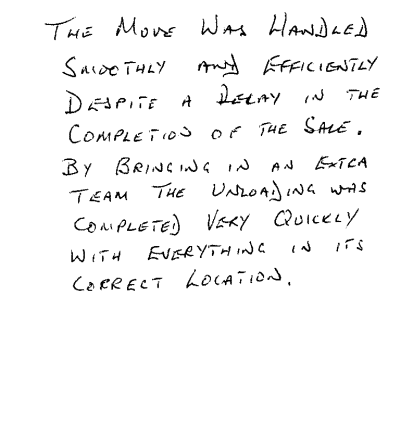 The Move Was Handled
Smoothly and Efficiently
Despite a Delay in the
Completion of the Sale.
By Bringing in an Extra
Team the Unloading was
Completed Very Quickly
with Everything in its
Correct Location.